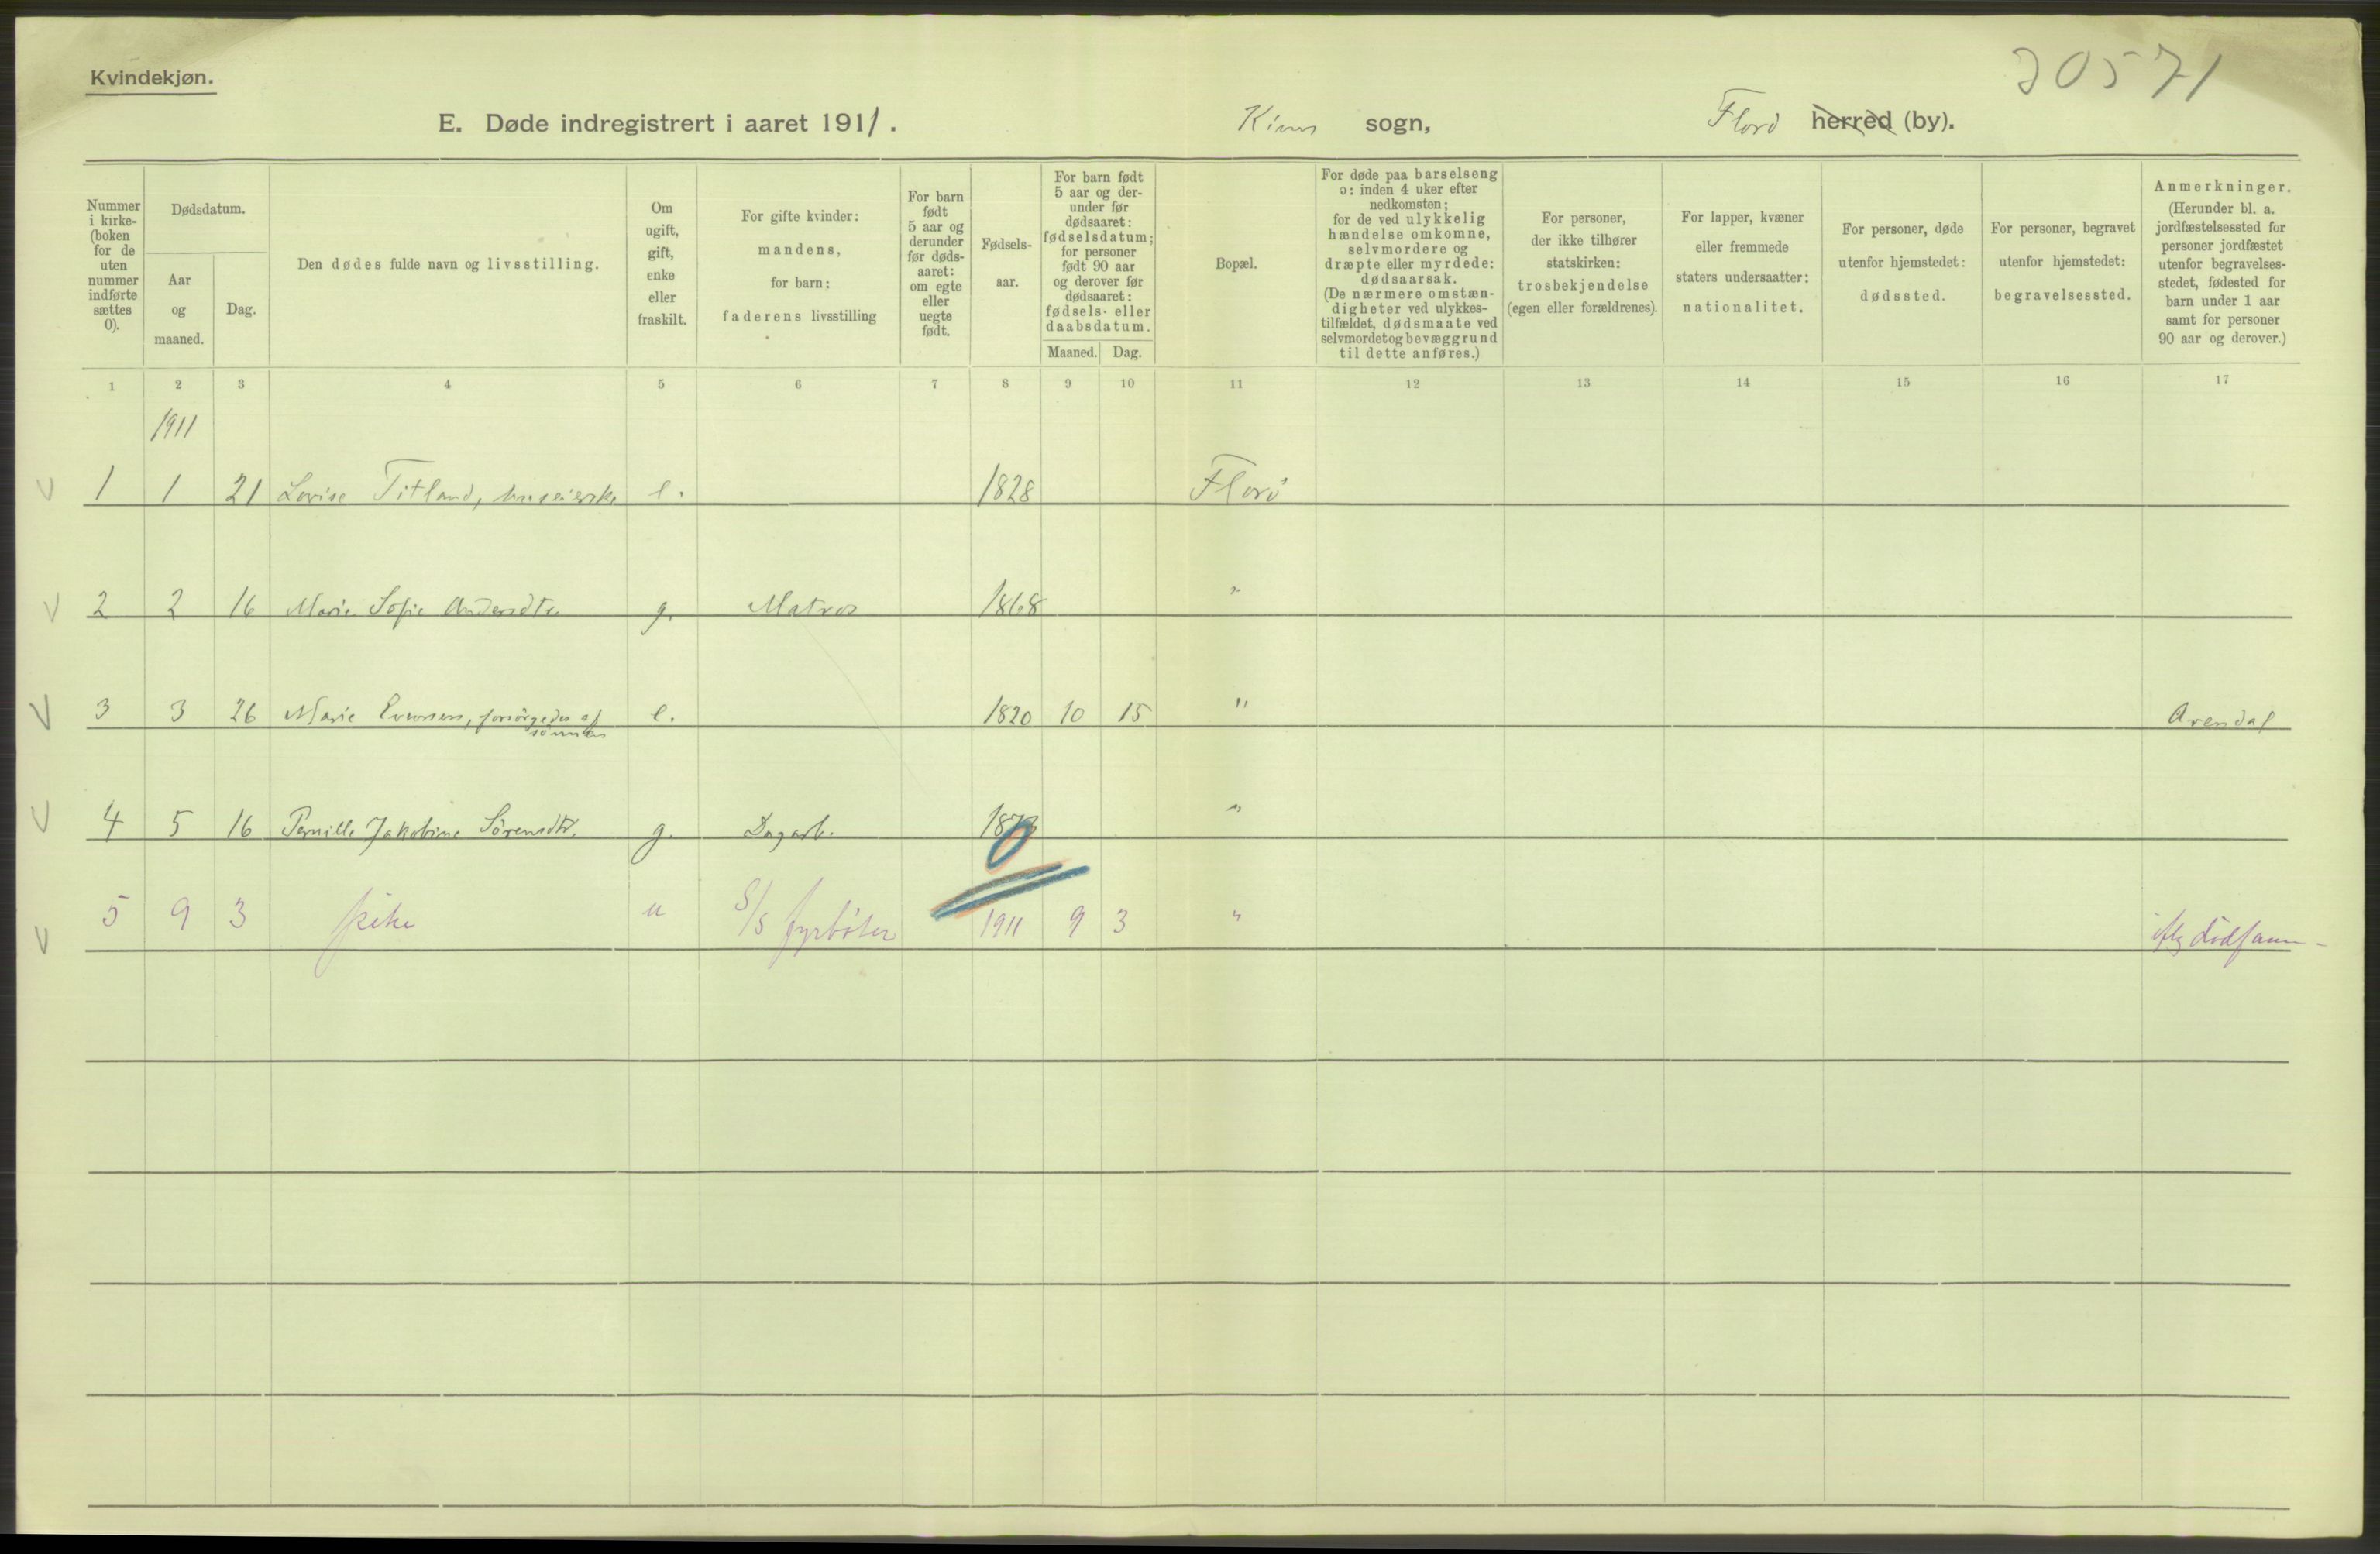 20571
Kvindekjøn.
E. Døde indregistrert i aaret 1911. Kinn sogn, Florø herred (by).
Nummer i kirkeboken for de uten nummer indførte sættes 0).
Dødsdatum.
Aar og maaned.
Dag.
Den dødes fulde navn og livsstilling.
Om ugift, gift, enke eller fraskilt.
For gifte kvinder: mandens, for barn: faderens livsstilling
For barn født 5 aar og derunder før dødsaaret: om egte eller uegte født.
Fødselsaar.
For barn født 5 aar og derunder før dødsaaret: fødselsdatum; for personer født 90 aar og derover før dødsaaret: fødsels- eller daabsdatum.
Maaned. Dag.
Bopæl.
For døde paa barselseng ɔ: inden 4 uker efter nedkomsten; for de ved ulykkelig hændelse omkomne, selvmordere og dræpte eller myrdede: dødsaarsak. (De nærmere omstændigheter ved ulykkestilfældet, dødsmaate ved selvmordet og bevæggrund til dette anføres.)
For personer, der ikke tilhører statskirken: trosbekjendelse (egen eller forældrenes).
For lapper, kvæner eller fremmede staters undersaatter: nationalitet.
For personer, døde utenfor hjemstedet: dødssted.
For personer, begravet utenfor hjemstedet: begravelsessted.
Anmerkninger. (Herunder bl. a. jordfæstelsessted for personer jordfæstet utenfor begravelsesstedet, fødested for barn under 1 aar samt for personer 90 aar og derover.)
1 2 3 4 5 6 7 8 9 10 11 12 13 14 15 16 17
1911
1 1 21 Lovise Titland, huseierske e. 1828 Florø
2 2 16 Marie Sofie Andersdtr. g. Matros 1868 "
3 3 26 Marie Evensen, forsørgedes af sønnen e. 1820 10 15 " Arendal
4 5 16 Pernille Jakobine Sørensdtr. g. Dagarb. "
5 9 3 pike u S/S fyrbøter 1911 9 3 "